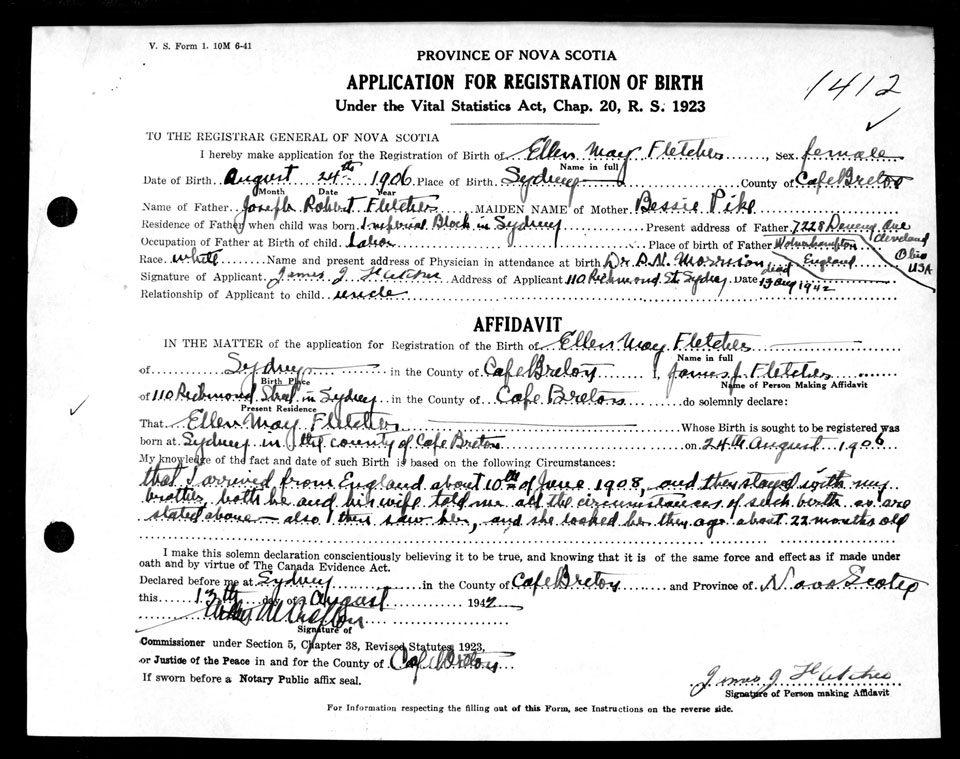 V. S. Form 1. 10M 6-41
PROVINCE OF NOVA SCOTIA
APPLICATION FOR REGISTRATION OF BIRTH
1412
Under the Vital Statistics Act, Chap. 20, R. S. 1923
TO THE REGISTRAR GENERAL OF NOVA SCOTIA
I hereby make application for the Registration of Birth of Ellen May Fletcher, Sex female
Name in full
Date of Birth August 24th 1906 Place of Birth Sydney County of Cape Breton
Month Date Year
Name of Father Joseph Robert Fletcher MAIDEN NAME of Mother Bessie Pike
Residence of Father when child was born Imperial Block in Sydney Present address of Father 7228 Ave Cleveland Ohio USA
Occupation of Father at Birth of child labor Place of birth of Father Wolverhampton England
Race white Name and present address of Physician in attendance at birth Dr. Morrison dead
Signature of Applicant James J Fletcher Address of Applicant 110 Richmond St. Sydney Date 13 Aug 1942
Relationship of Applicant to child uncle
AFFIDAVIT
IN THE MATTER of the application for Registration of the Birth of Ellen May Fletcher
Name in full
of Sydney in the County of Cape Breton I, James J Fletcher
Birth Place Name of Person Making Affidavit
of 110 Richmond Street in Sydney in the County of Cape Breton do solemnly declare:
Present Residence
That Ellen May Fletcher Whose Birth is sought to be registered was
born at Sydney in the county of Cape Breton on 24th August 1906
My knowledge of the fact and date of such Birth is based on the following Circumstances:
that I arrived from England about 10th of June 1908, and then stayed with my
brother, both he and his wife told me all the circumstances of such birth as are
stated above - also I then saw her, and she looked her then age about 22 months old
I make this solemn declaration conscientiously believing it to be true, and knowing that it is of the same force and effect as if made under
oath and by virtue of The Canada Evidence Act.
Declared before me at Sydney in the County of Cape Breton and Province of Nova Scotia
this 13th day of August 1942
Signature of
Commissioner under Section 5, Chapter 38, Revised Statutes 1923,
or Justice of the Peace in and for the County of Cape Breton
If sworn before a Notary Public affix seal.
James J Fletcher
Signature of Person making Affidavit
For Information respecting the filling out of this Form, see Instructions on the reverse side.